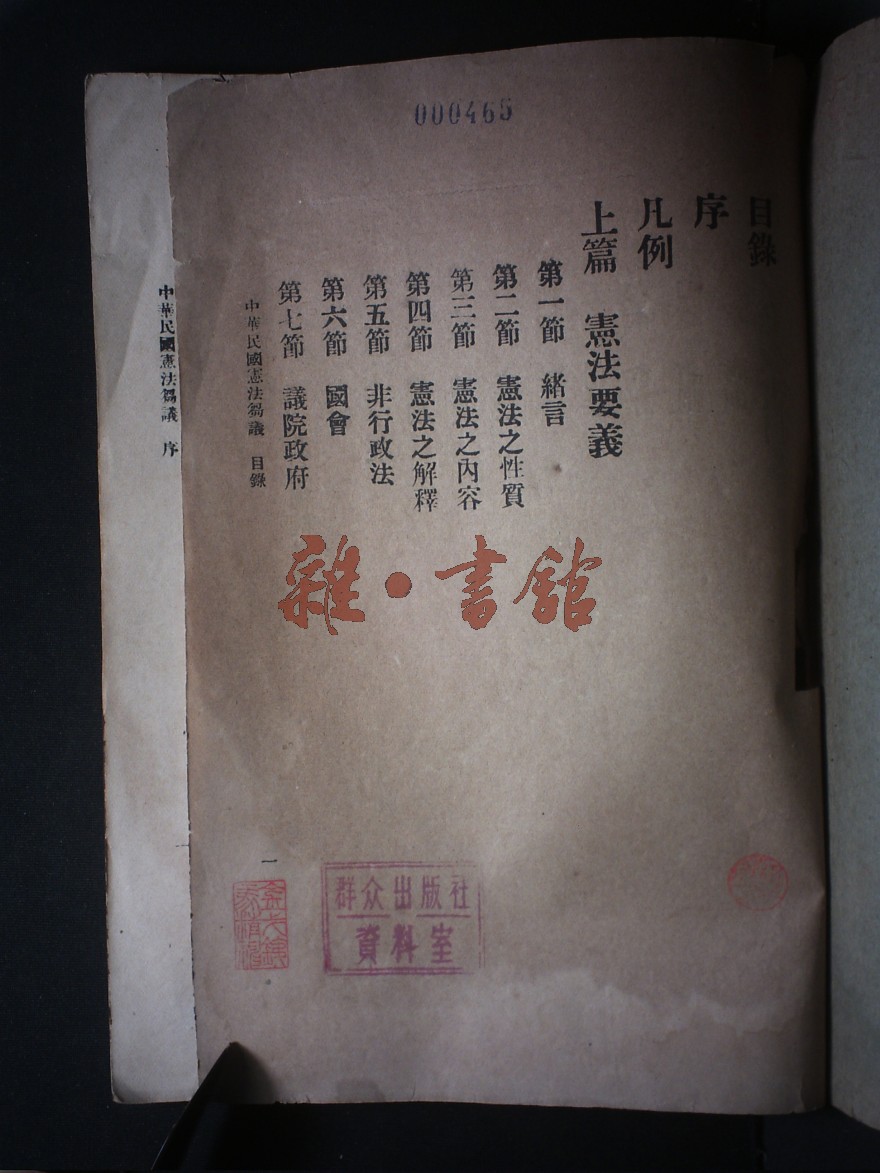 000465
目錄
序
凡例
上篇 憲法要義
第一節 緒言
第二節 憲法之性質
第三節 憲法之內容
第四節 憲法之解釋
第五節 非行政法
第六節 國會
第七節 議院政府
中華民國憲法芻議 目錄
一
中華民國憲法芻議 序
雜·書館
群众出版社
資料室